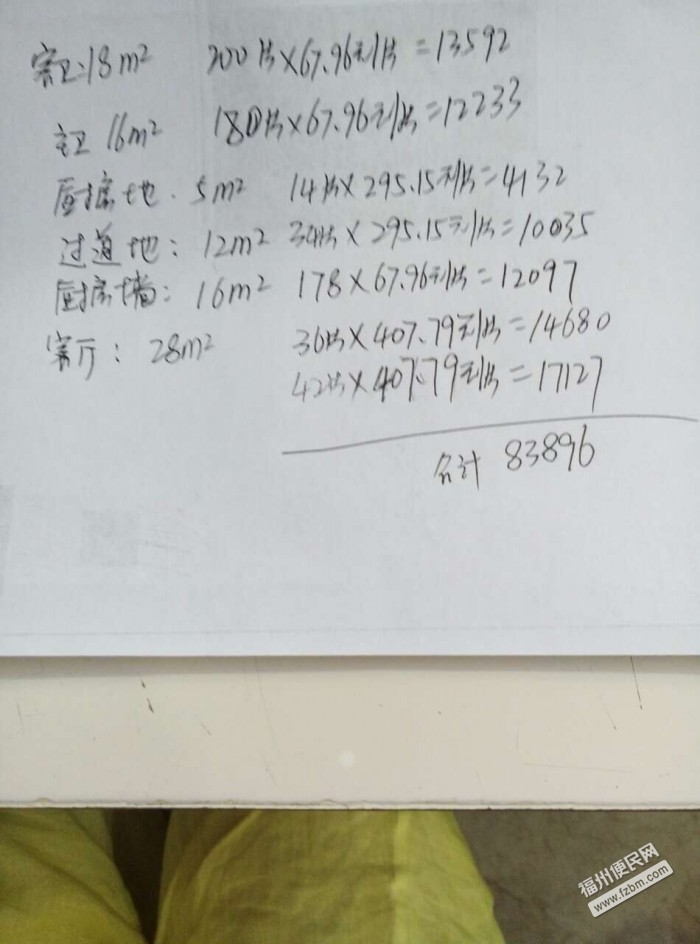 客卫:18m² 200片×67.96元/片=13592
主卫 16m² 180片×67.96元/片=12233
厨房地. 5m² 14片×295.15元/片=4132
过道地: 12m² 34片×295.15元/片=10035
厨房墙: 16m² 178×67.96元/片=12097
客厅: 28m² 36片×407.79元/片=14680
42片×407.79元/片=17127
合计 83896
福州便民网
www.fzbm.com